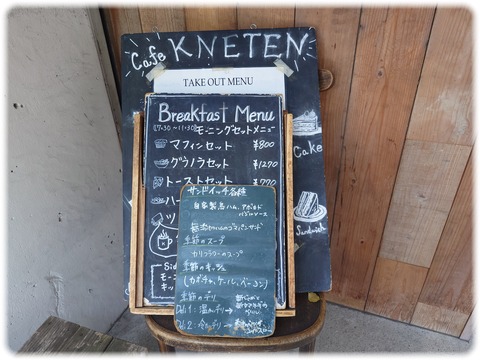 Cafe KNETEN
TAKE OUT MENU
Breakfast Menu
(7:30~11:30) モーニングセットメニュー
マフィンセット ¥800
グラノラセット ¥1270
トーストセット ¥770
Cake
Sandwich
サンドイッチ各種
自家製鶏ハム、アボカド
バジルソース
季節のスープ
カリフラワーのスープ
季節のキッシュ
(カボチャ、ケール、ベーコン)
季節のデリ
Deli 1:温かいデリ→
Deli 2:冷たいデリ→
Sid
モーニ
キッ